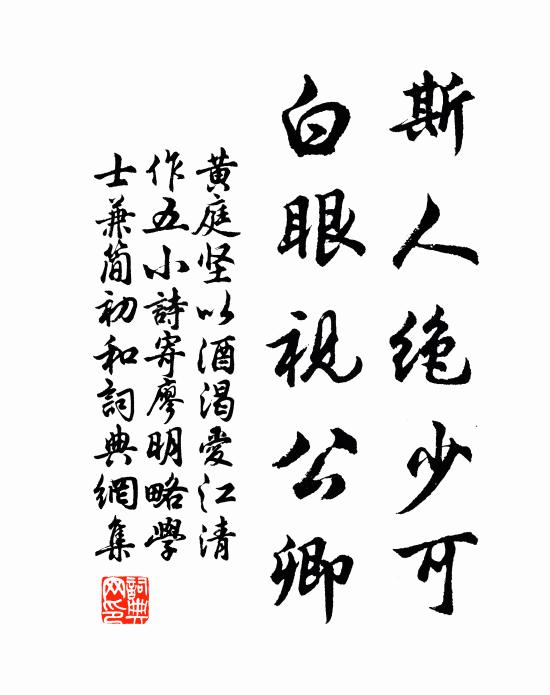 斯人绝少可
白眼視公卿
黄庭坚以酒渴愛江清
作五小詩寄廖明略學
士兼简初和詞典網集
詞典網印